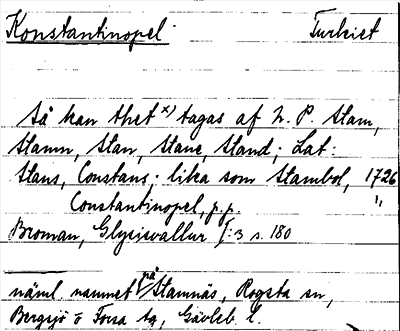 Konstantinopel. Turkiet
Så kan thet x) tagas af N. P. Stam,
Stamn, Stan, Stane, Stand; Lat:
Stans, Constans; lika som Stambol, 1726
Constantinopel, p.p. "
Broman, Glysisvallur I:3 s. 180
näml. namnet på Stamnäs, Rogsta sn,
Bergsjö o Forsa tg, Gävleb. l.